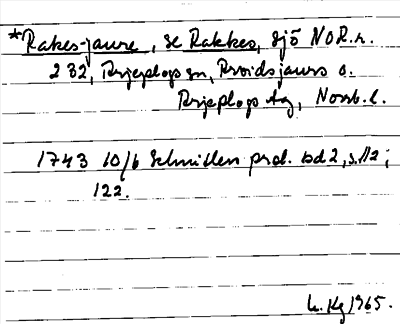 *Rakes-jaure, se Rakkes, sjö NOR. r.
232, Arjeplogs sn, Arvidsjaurs o.
Arjeplogs tg, Norrb. l.
1743 10/6 Schnitlers prot. bd 2, s. 112;
122.
Kg 1965.